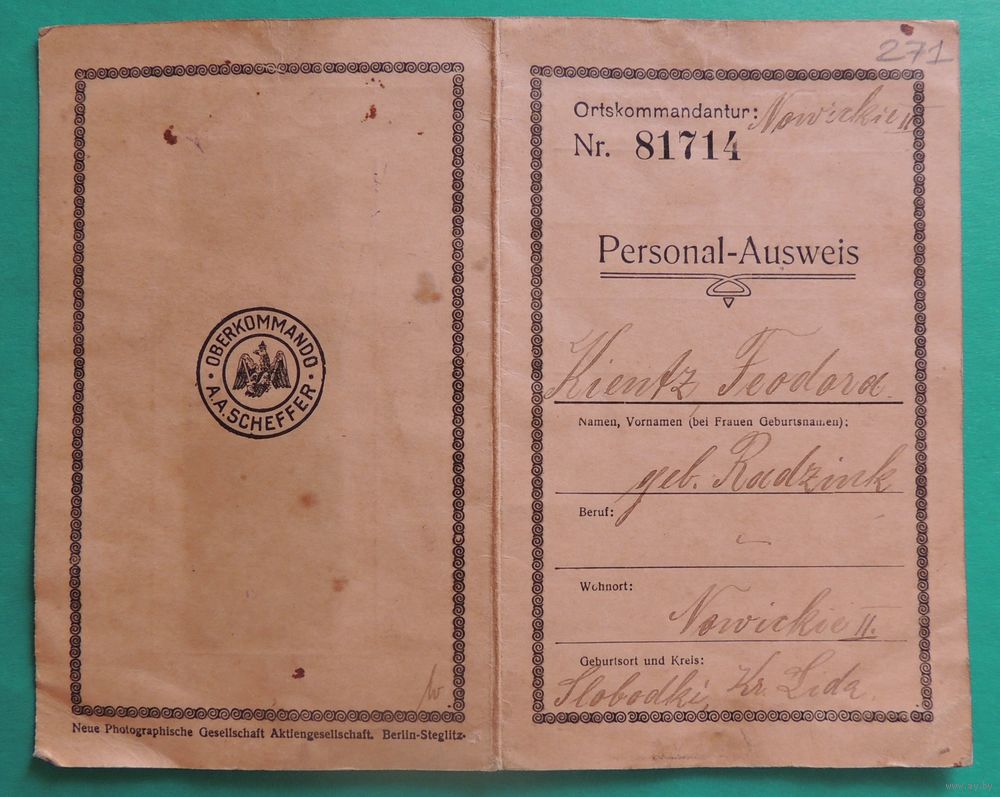 OBERKOMMANDO
A.A. SCHEFFER
Neue Photographische Gesellschaft Aktiengesellschaft. Berlin-Steglitz.
271
Ortskommandantur: Nowickie II
Nr. 81714
Personal-Ausweis
Kientz, Feodora.
Namen, Vornamen (bei Frauen Geburtsnamen):
geb. Radzink
Beruf:
–
Wohnort:
Nowickie II.
Geburtsort und Kreis:
Slobodki, Kr. Lida.
www.ay.by